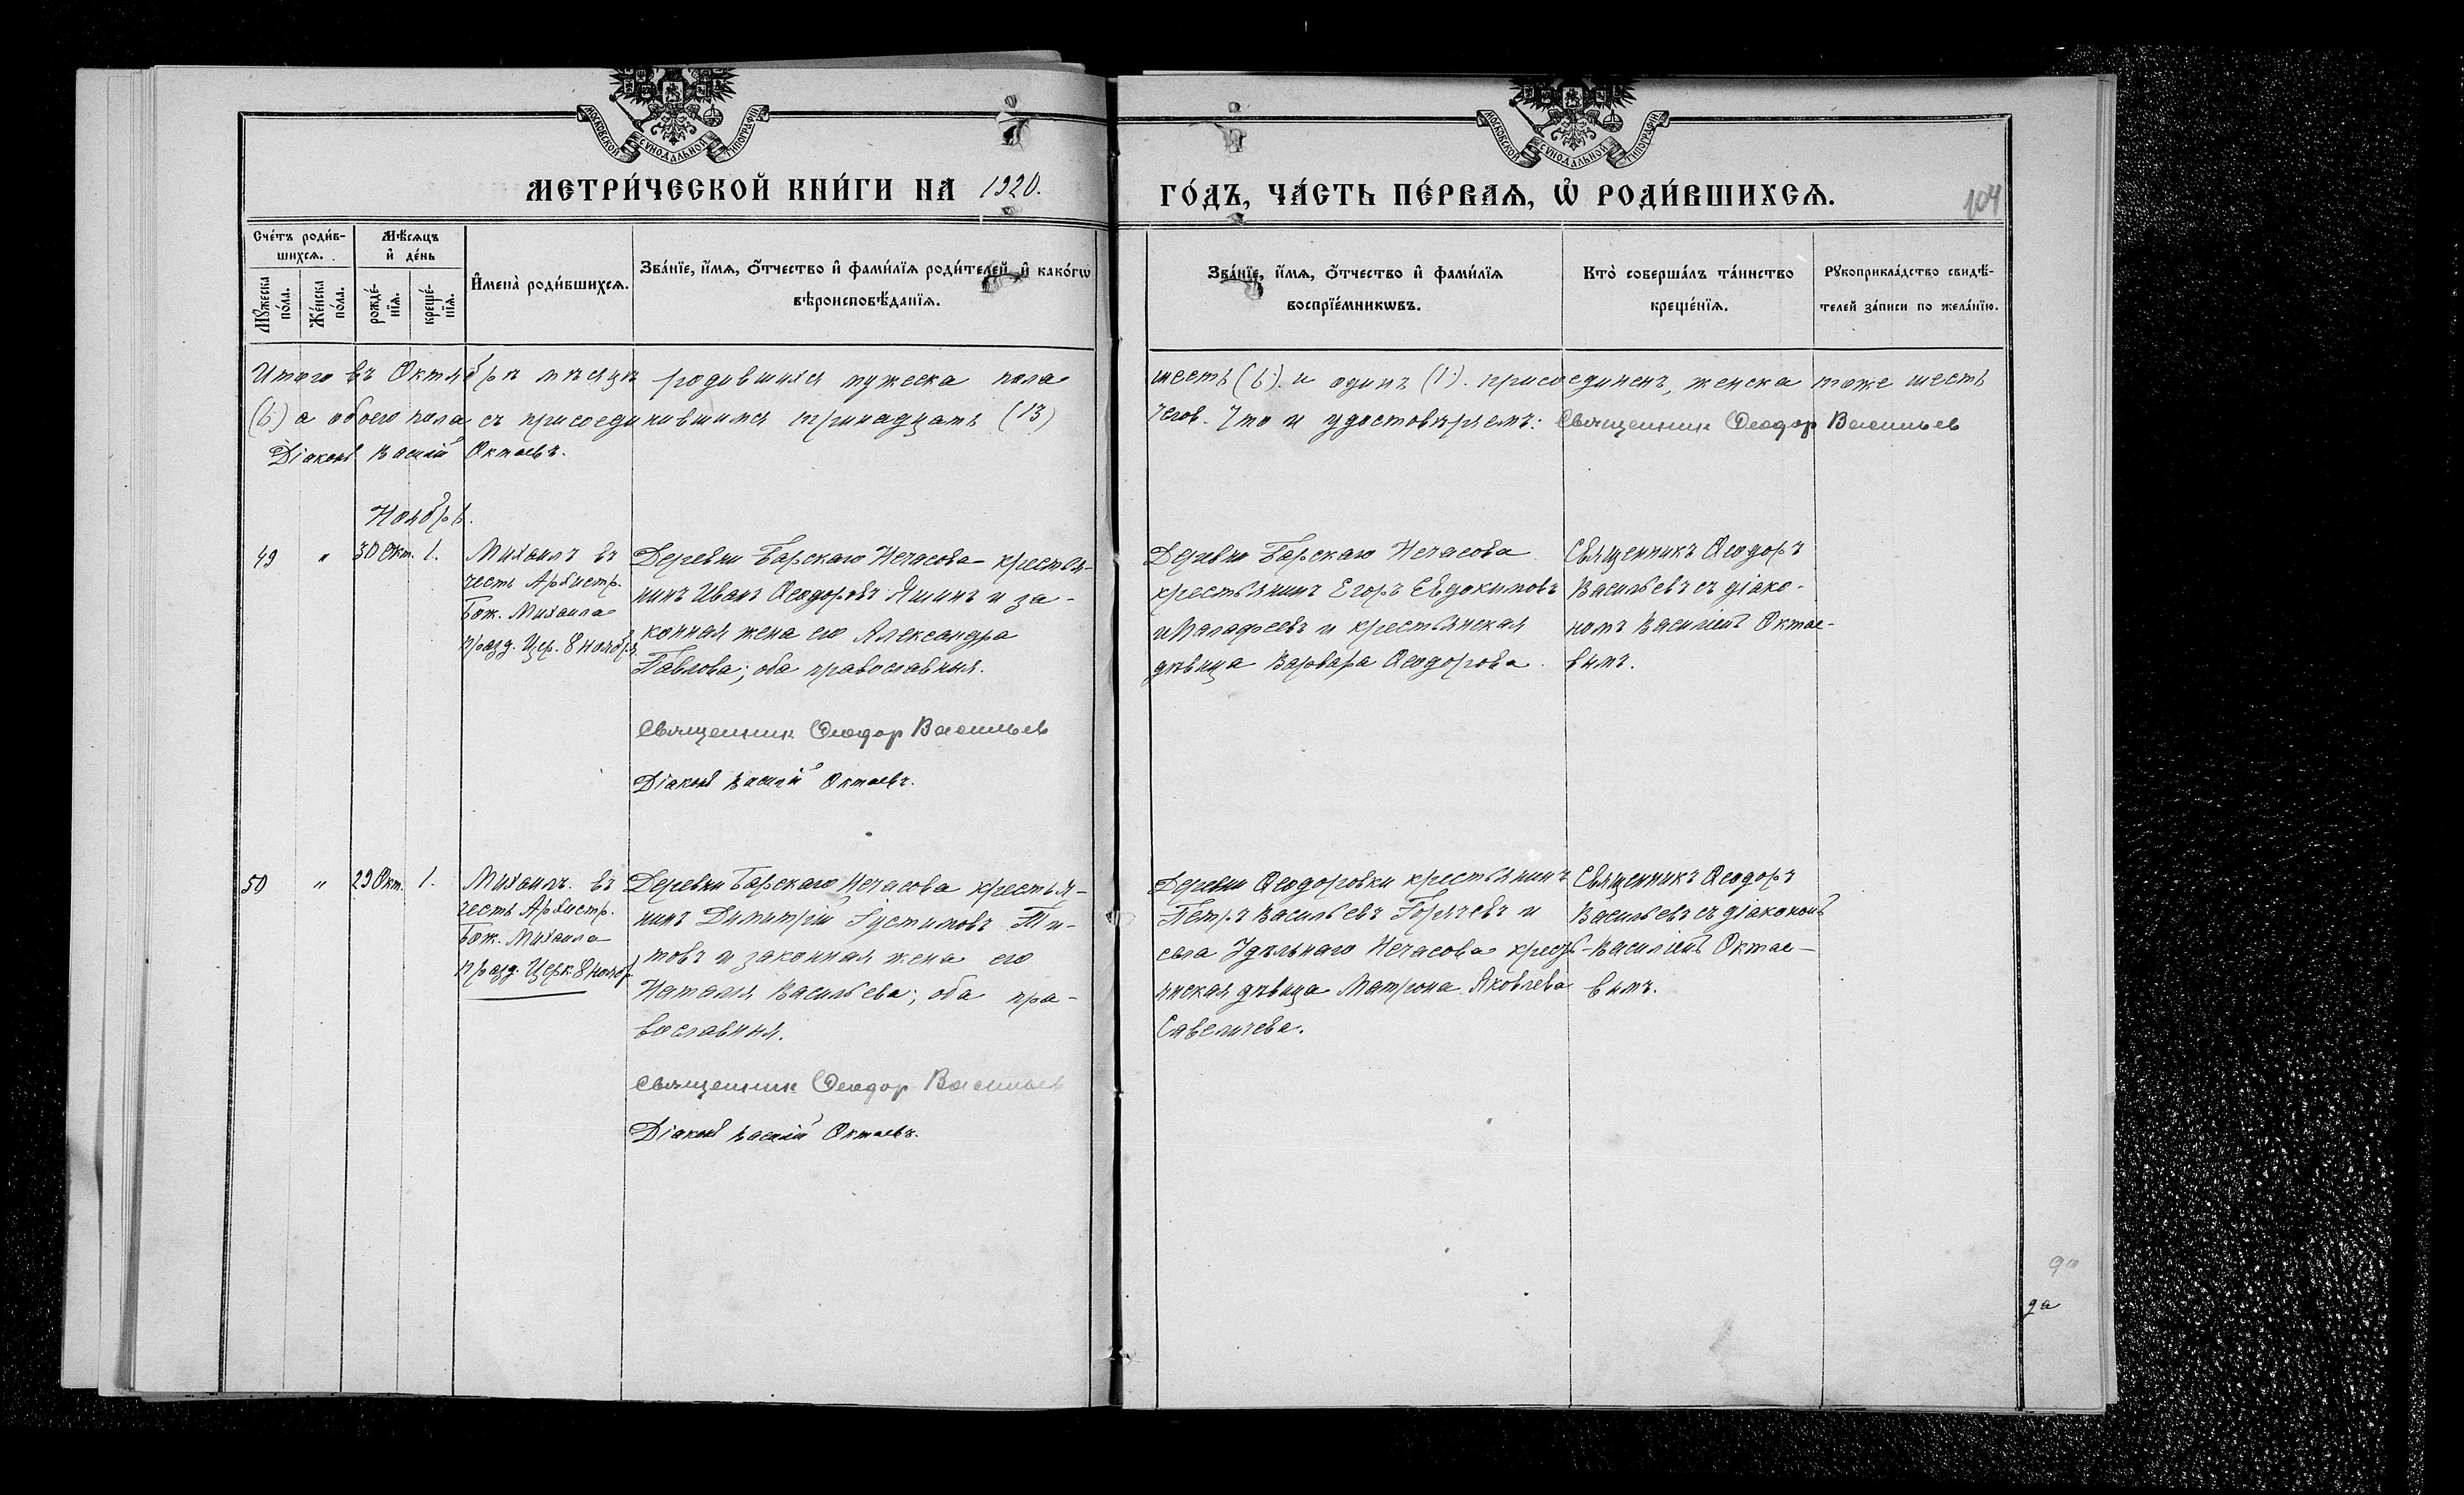 МОСКОВСКОЙ СѴНОДАЛЬНОЙ ТИПОГРАФІИ
МОСКОВСКОЙ СѴНОДАЛЬНОЙ ТИПОГРАФІИ
МЕТРИ́ЧЕСКОЙ КНИ́ГИ НА 1920. ГО́ДЪ, ЧА́СТЬ ПЕ́РВАѦ, Ѡ҆ РОДИ́ВШИХСѦ.
104
Сче́тъ роди́в-
шихсѧ.
Мѣ́сѧцъ
и҆ де́нь
Мꙋ́жеска по́ла.
Же́нска по́ла.
рожде́-
нїѧ.
креще́-
нїѧ.
И҆мена̀ роди́вшихсѧ.
Зва́нїе, и҆́мѧ, ѻ҆́тчество и҆ фами́лїѧ роди́телей и҆ како́гѡ
вѣроисповѣ́данїѧ.
Зва́нїе, и҆́мѧ, ѻ҆́тчество и҆ фами́лїѧ
воспрїе́мникѡвъ.
Кто̀ соверша́лъ та́инство
креще́нїѧ.
Рꙋкоприкла́дство свидѣ́-
телей за́писи по жела́нїю.
Итого въ Октябрѣ мѣсяцѣ родившихся мужеска пола шесть (6). и одинъ (1). присоединенъ, женска тоже шесть
(6) а обоего пола съ присоединившимся тринадцать (13) челов. Что и удостовѣряемъ: Священник Феодор Васильев
Діаконъ Василій Октаевъ.
Ноябрь.
49 " 30 Окт. 1.
Михаилъ въ
честь Архистр.
Бож. Михаила
празд. Цер. 8 ноября.
Деревни Барскаго Нечасова крестья-
нинъ Иванъ Ѳеодоровъ Яшинъ и за-
конная жена его Александра
Павлова; оба православныя.
Священник Феодор Васильев
Діаконъ Василій Октаевъ.
Деревни Барскаго Нечасова
крестьянинъ Егоръ Евдокимовъ
Малафеевъ и крестьянская
дѣвица Варвара Ѳеодорова.
Священникъ Ѳеодоръ
Васильевъ съ діако-
номъ Василіемъ Октае-
вымъ.
50 " 29 Окт. 1.
Михаилъ. въ
честь Архистр.
Бож. Михаила
празд. Церк. 8 ноябр.
Деревни Барскаго Нечасова крестья-
нинъ Димитрій Густимовъ Ти-
товъ и законная жена его
Наталія Васильева; оба пра-
вославныя.
Священник Феодор Васильев
Діаконъ Василій Октаевъ.
Деревни Ѳеодоровки крестьянинъ
Петръ Васильевъ Горячевъ и
села Удѣльнаго Нечасова кресть-
янская дѣвица Матрона Яковлева
Савеличева.
Священникъ Ѳеодоръ
Васильевъ съ діакономъ
Василіемъ Октае-
вымъ.
да